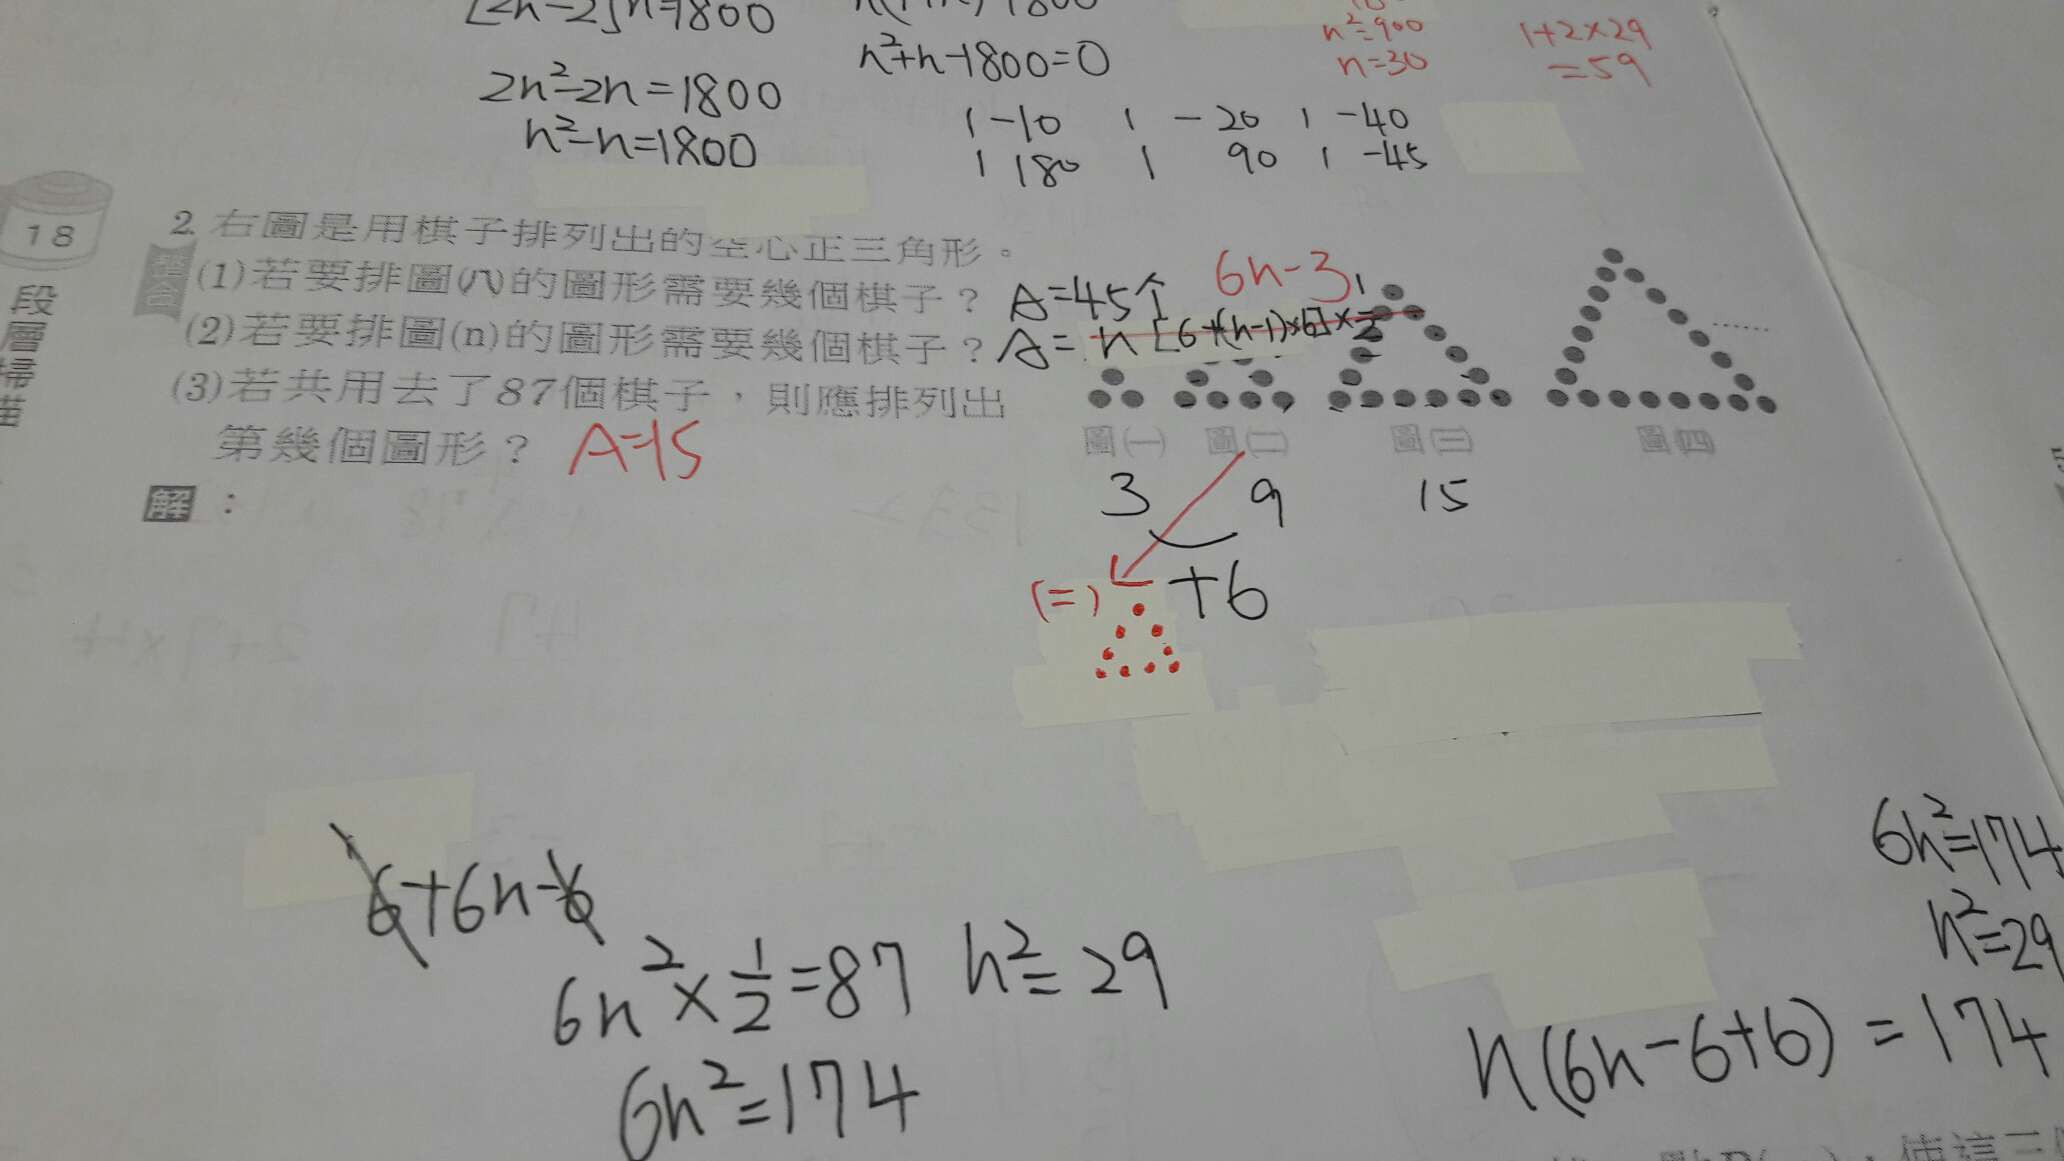 [2n-2]n=1800
2n²-2n=1800
n²-n=1800
n²+n-1800=0
1 -10 1 -20 1 -40
1 180 1 90 1 -45
n²=900
n=30
1+2×29
=59
18
段
層
掃
描
2. 右圖是用棋子排列出的空心正三角形。
(1)若要排圖(八)的圖形需要幾個棋子？ A=45个
6n-3
(2)若要排圖(n)的圖形需要幾個棋子？ A= n[6+(n-1)×6]×1/2
(3)若共用去了87個棋子，則應排列出
第幾個圖形？ A=15
......
圖(一) 圖(二) 圖(三) 圖(四)
3 9 15
+6
(二)
解：
6+6n-6
6n²×1/2=87 n²=29
6n²=174
6n²=174
n²=29
n(6n-6+6)=174